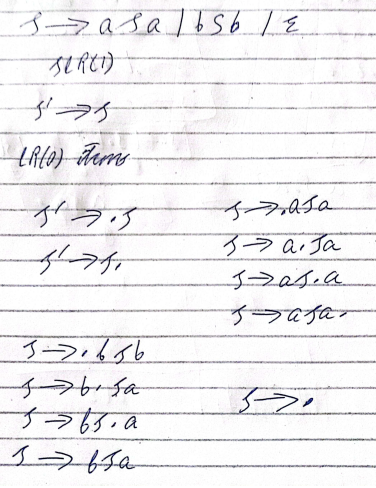 S → aSa | bSb | ε
SLR(1)
S' → S
LR(0) items
S' → .S
S' → S.
S → .aSa
S → a.Sa
S → aS.a
S → aSa.
S → .bSb
S → b.Sa
S → bS.a
S → bSa
S → .